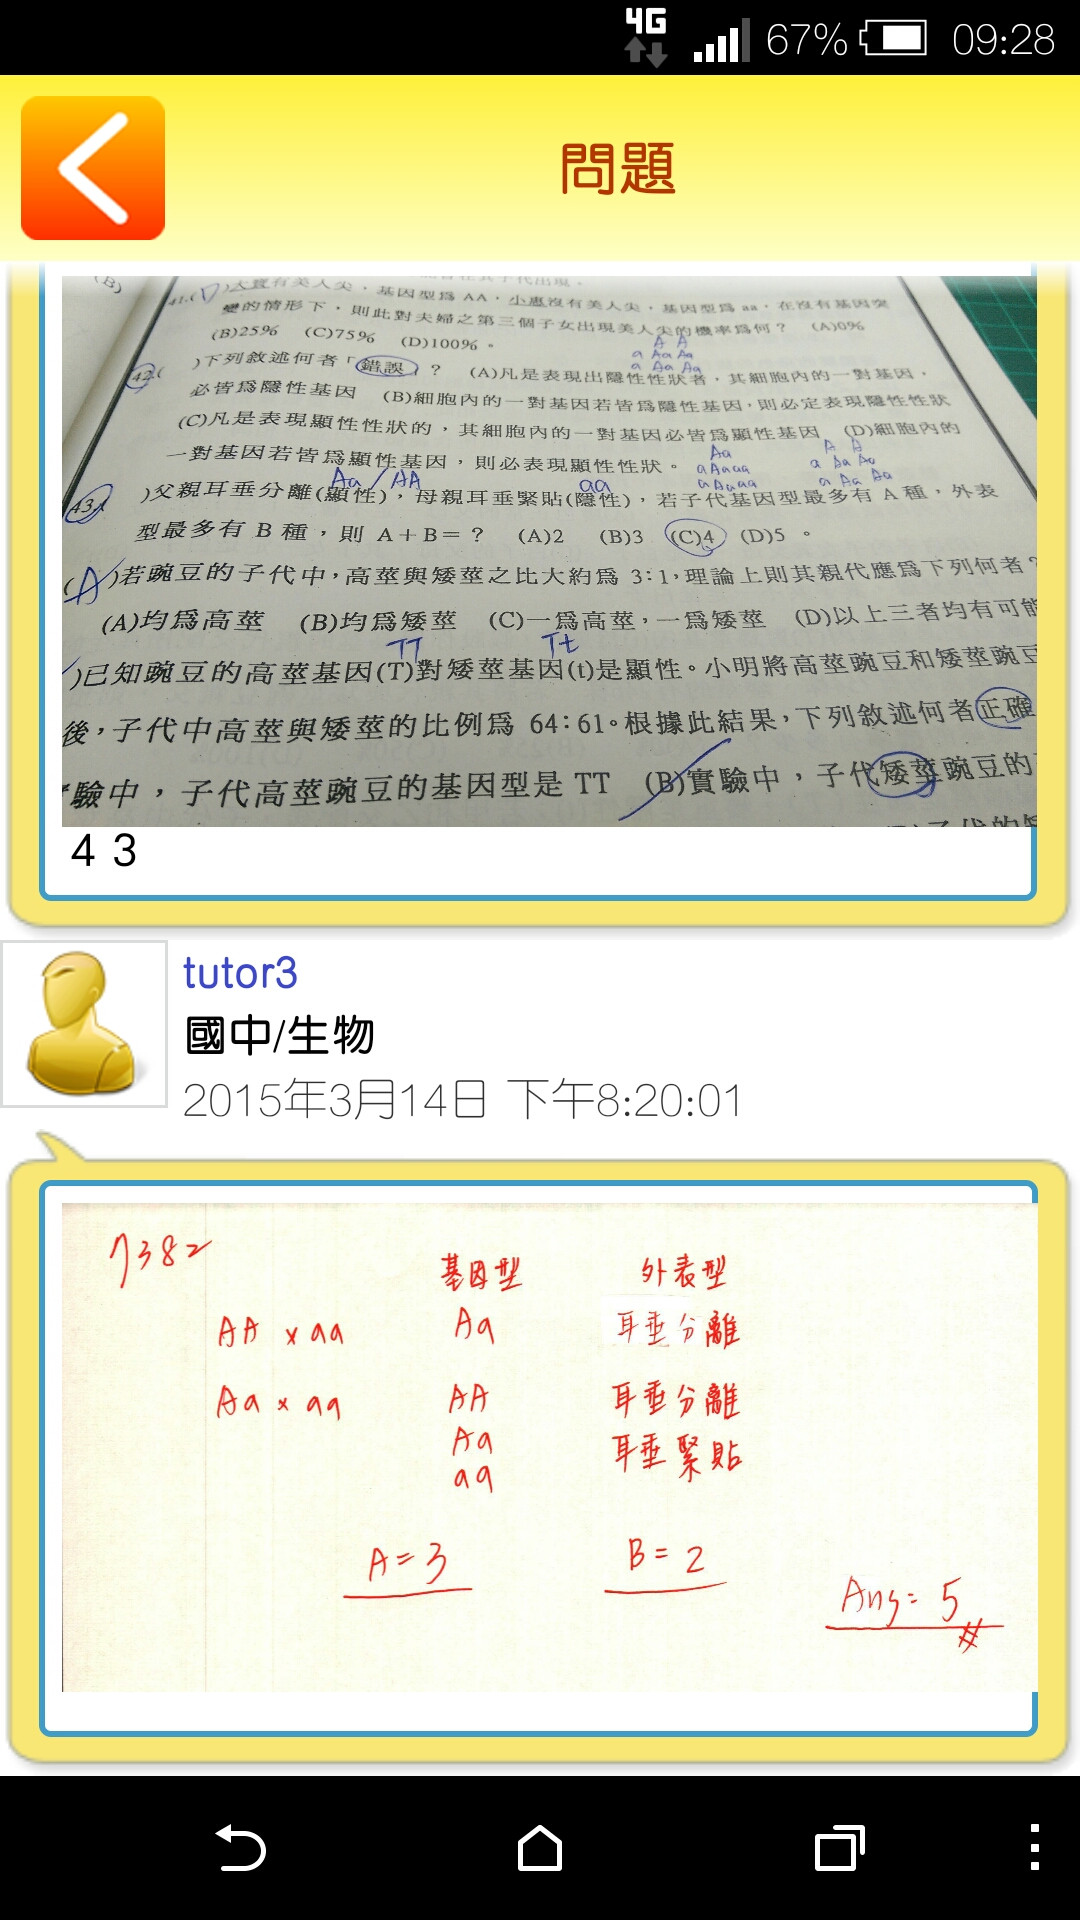 4G 67% 09:28
問題
(B)
41.(D)大寶有美人尖，基因型為 AA，小惠沒有美人尖，基因型為 aa，在沒有基因突
變的情形下，則此對夫婦之第三個子女出現美人尖的機率為何？ (A)0%
(B)25% (C)75% (D)100%。
A A
a Aa Aa
a Aa Aa
42.( )下列敘述何者「錯誤」？ (A)凡是表現出隱性性狀者，其細胞內的一對基因，
必皆為隱性基因 (B)細胞內的一對基因若皆為隱性基因，則必定表現隱性性狀
(C)凡是表現顯性性狀的，其細胞內的一對基因必皆為顯性基因 (D)細胞內的
一對基因若皆為顯性基因，則必表現顯性性狀。
Aa
a Aa aa
a Aa aa
A A
a Aa Aa
a Aa Aa
Aa / AA aa
43.( )父親耳垂分離(顯性)，母親耳垂緊貼(隱性)，若子代基因型最多有 A 種，外表
型最多有 B 種，則 A＋B＝？ (A)2 (B)3 (C)4 (D)5。
(A)若豌豆的子代中，高莖與矮莖之比大約為 3：1，理論上則其親代應為下列何者？
(A)均為高莖 (B)均為矮莖 (C)一為高莖，一為矮莖 (D)以上三者均有可能
TT Tt
)已知豌豆的高莖基因(T)對矮莖基因(t)是顯性。小明將高莖豌豆和矮莖豌豆
後，子代中高莖與矮莖的比例為 64：61。根據此結果，下列敘述何者正確
驗中，子代高莖豌豆的基因型是 TT (B)實驗中，子代矮莖豌豆的
43
tutor3
國中/生物
2015年3月14日 下午8:20:01
7382
基因型 外表型
AA × aa Aa 耳垂分離
Aa × aa AA 耳垂分離
Aa 耳垂緊貼
aa
A = 3 B = 2
Ans = 5 #